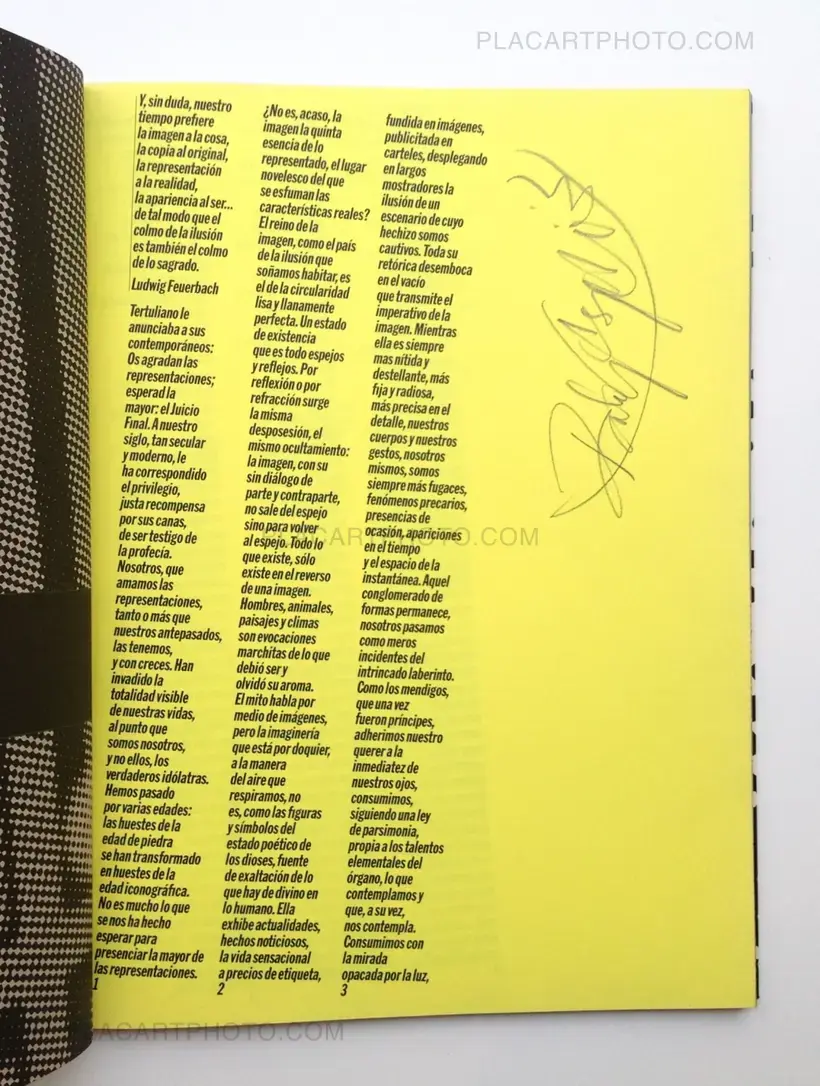 PLACARTPHOTO.COM
Y, sin duda, nuestro
tiempo prefiere
la imagen a la cosa,
la copia al original,
la representación
a la realidad,
la apariencia al ser...
de tal modo que el
colmo de la ilusión
es también el colmo
de lo sagrado.
Ludwig Feuerbach
Tertuliano le
anunciaba a sus
contemporáneos:
Os agradan las
representaciones;
esperad la
mayor: el Juicio
Final. A nuestro
siglo, tan secular
y moderno, le
ha correspondido
el privilegio,
justa recompensa
por sus canas,
de ser testigo de
la profecía.
Nosotros, que
amamos las
representaciones,
tanto o más que
nuestros antepasados,
las tenemos,
y con creces. Han
invadido la
totalidad visible
de nuestras vidas,
al punto que
somos nosotros,
y no ellos, los
verdaderos idólatras.
Hemos pasado
por varias edades:
las huestes de la
edad de piedra
se han transformado
en huestes de la
edad iconográfica.
No es mucho lo que
se nos ha hecho
esperar para
presenciar la mayor de
las representaciones.
1
¿No es, acaso, la
imagen la quinta
esencia de lo
representado, el lugar
novelesco del que
se esfuman las
características reales?
El reino de la
imagen, como el país
de la ilusión que
soñamos habitar, es
el de la circularidad
lisa y llanamente
perfecta. Un estado
de existencia
que es todo espejos
y reflejos. Por
reflexión o por
refracción surge
la misma
desposesión, el
mismo ocultamiento:
la imagen, con su
sin diálogo de
parte y contraparte,
no sale del espejo
sino para volver
al espejo. Todo lo
que existe, sólo
existe en el reverso
de una imagen.
Hombres, animales,
paisajes y climas
son evocaciones
marchitas de lo que
debió ser y
olvidó su aroma.
El mito habla por
medio de imágenes,
pero la imaginería
que está por doquier,
a la manera
del aire que
respiramos, no
es, como las figuras
y símbolos del
estado poético de
los dioses, fuente
de exaltación de lo
que hay de divino en
lo humano. Ella
exhibe actualidades,
hechos noticiosos,
la vida sensacional
a precios de etiqueta,
2
fundida en imágenes,
publicitada en
carteles, desplegando
en largos
mostradores la
ilusión de un
escenario de cuyo
hechizo somos
cautivos. Toda su
retórica desemboca
en el vacío
que transmite el
imperativo de la
imagen. Mientras
ella es siempre
mas nítida y
destellante, más
fija y radiosa,
más precisa en el
detalle, nuestros
cuerpos y nuestros
gestos, nosotros
mismos, somos
siempre más fugaces,
fenómenos precarios,
presencias de
ocasión, apariciones
en el tiempo
y el espacio de la
instantánea. Aquel
conglomerado de
formas permanece,
nosotros pasamos
como meros
incidentes del
intrincado laberinto.
Como los mendigos,
que una vez
fueron príncipes,
adherimos nuestro
querer a la
inmediatez de
nuestros ojos,
consumimos,
siguiendo una ley
de parsimonia,
propia a los talentos
elementales del
órgano, lo que
contemplamos y
que, a su vez,
nos contempla.
Consumimos con
la mirada
opacada por la luz,
3
PLACARTPHOTO.COM
PLACARTPHOTO.COM